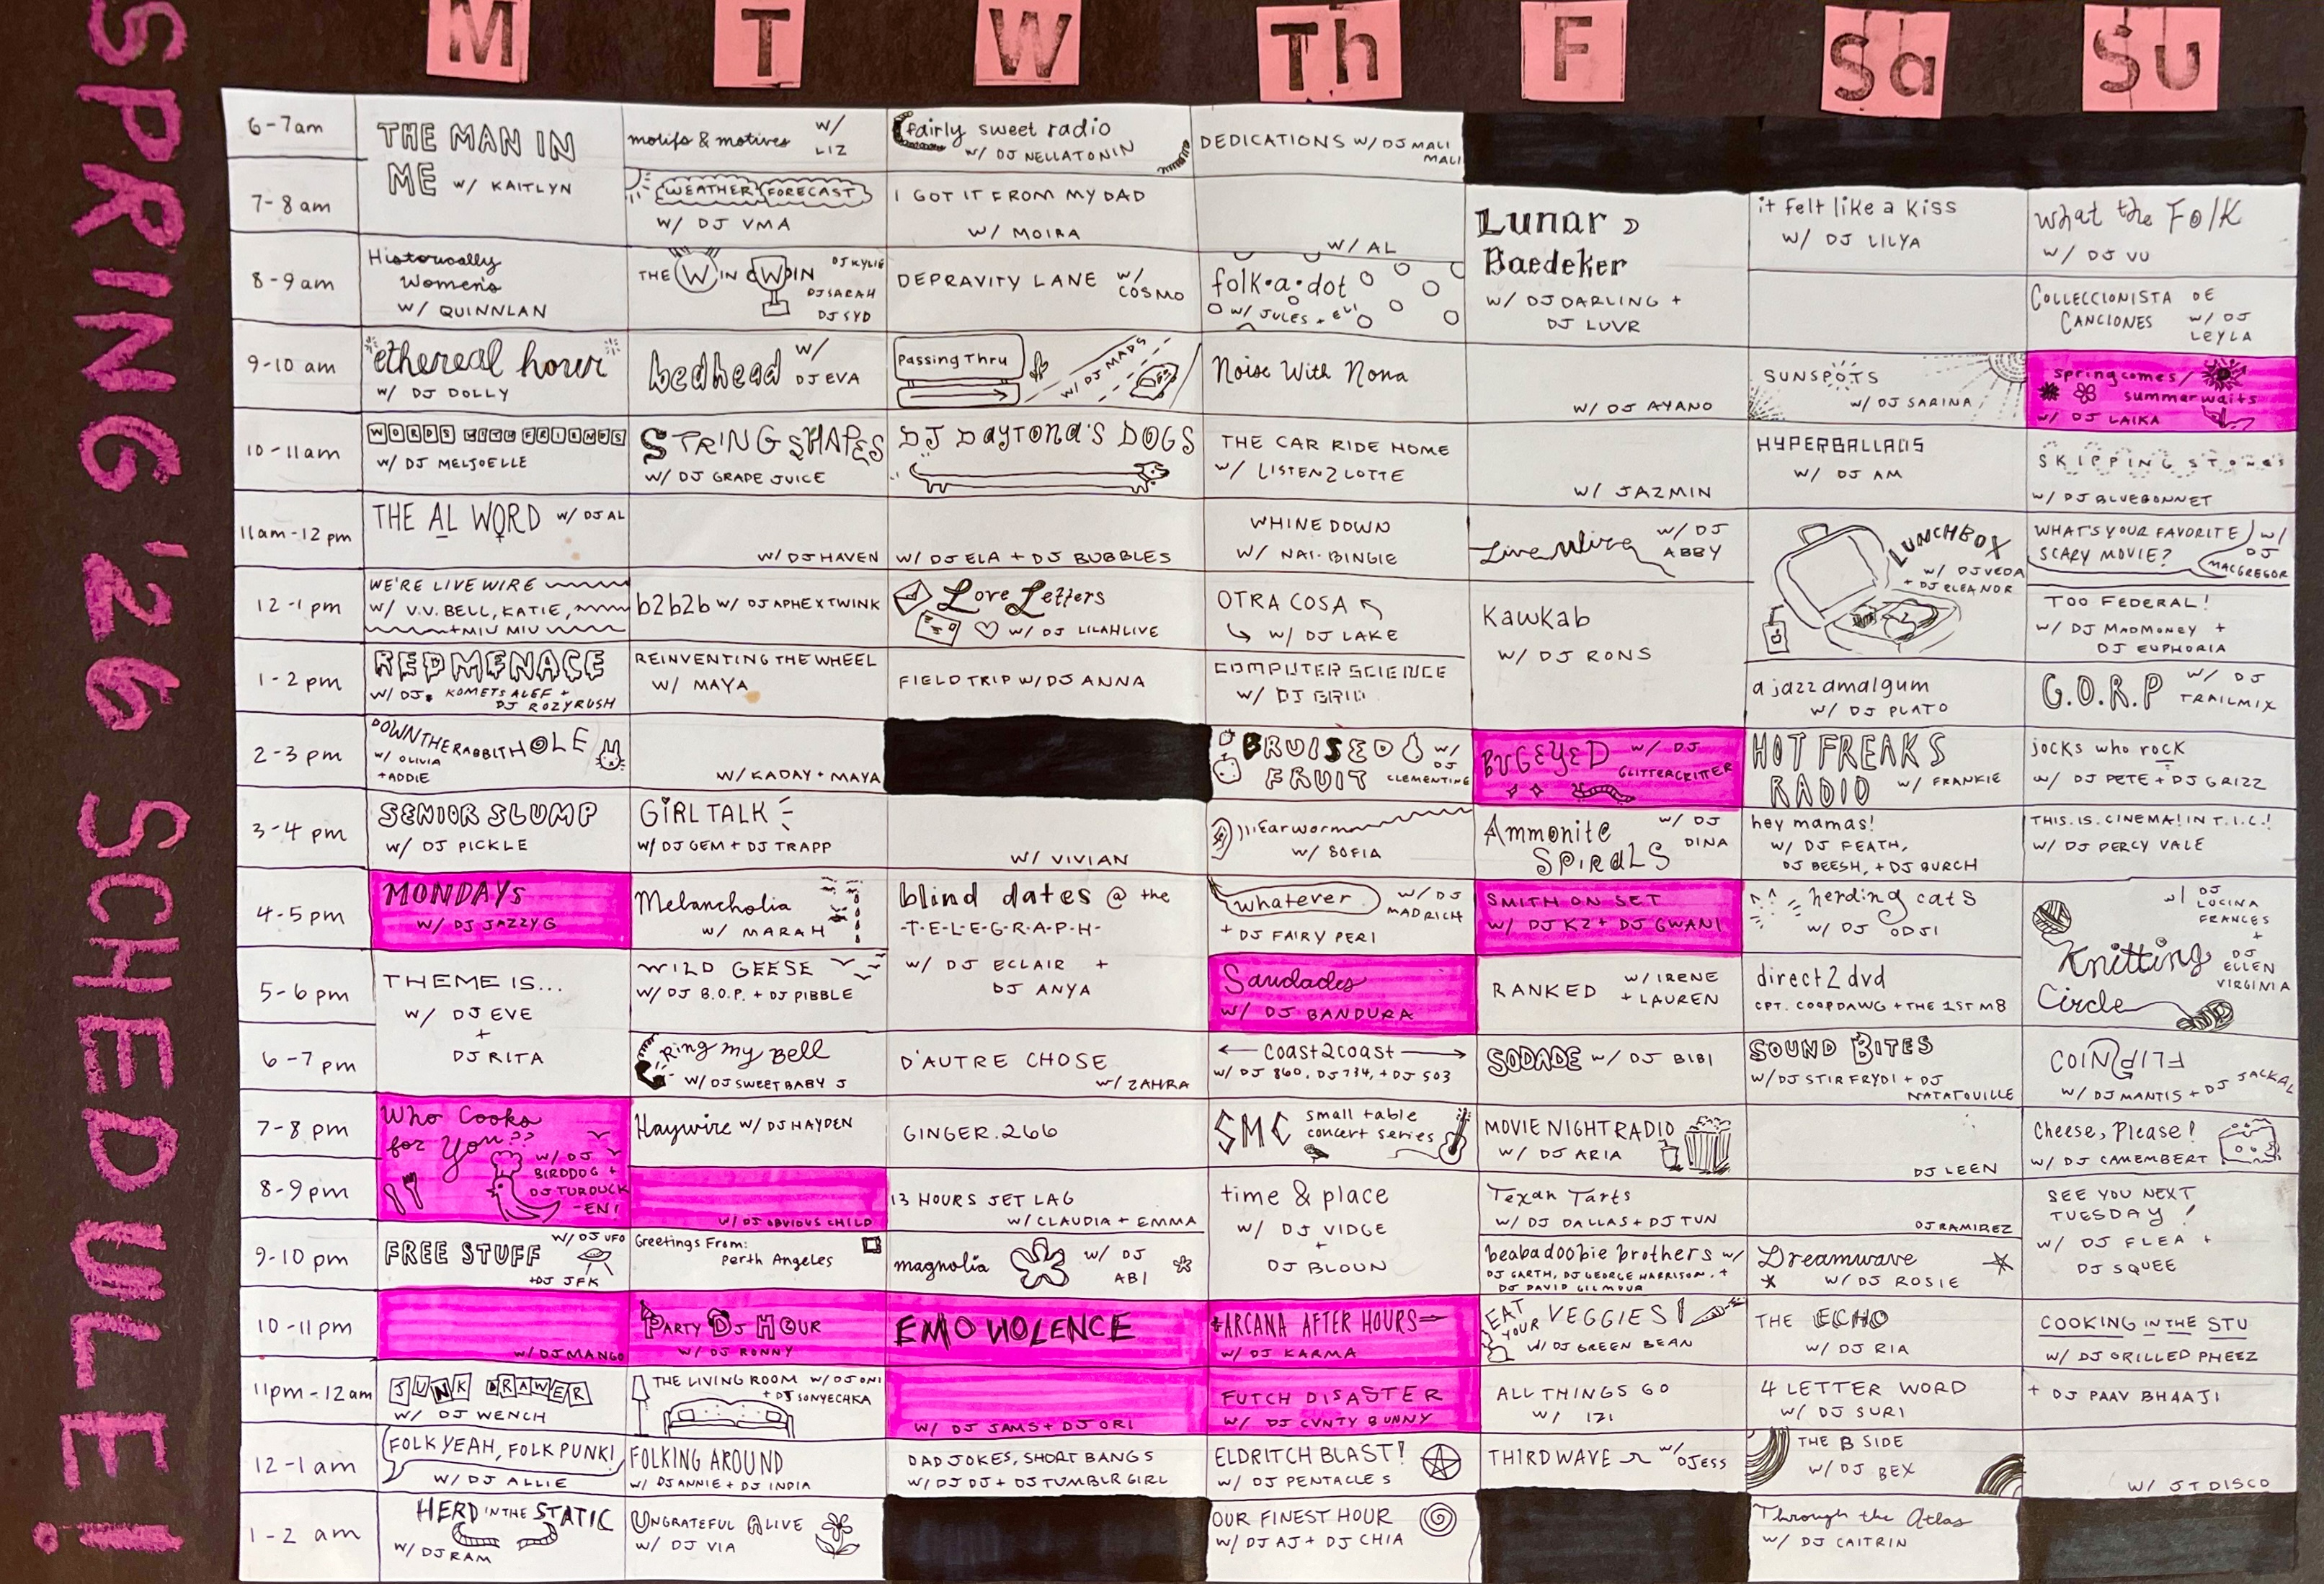 SPRING '26 SCHEDULE!
M T W Th F Sa Su
6-7am
THE MAN IN
ME w/ KAITLYN
motifs & motives w/
LIZ
fairly sweet radio
w/ DJ NELLATONIN
DEDICATIONS w/ DJ MALI
MALI
7-8am
WEATHER FORECAST
w/ DJ VMA
I GOT IT FROM MY DAD
w/ MOIRA
w/ AL
Lunar
Baedeker
w/ DJ DARLING +
DJ LUVR
it felt like a kiss
w/ DJ LILYA
what the Folk
w/ DJ VU
8-9am
Historically
Women's
w/ QUINNLAN
THE W IN WDIN
DJ KYLIE
DJ SARAH
DJ SYD
DEPRAVITY LANE w/
COSMO
folk•a•dot
w/ JULES + evi
COLLECCIONISTA DE
CANCIONES w/ DJ
LEYLA
9-10 am
"ethereal hour"
w/ DJ DOLLY
bedhead w/
DJ EVA
Passing Thru
w/ DJ MADS
Noise With Nona
w/ DJ AYANO
SUNSPOTS
w/ DJ SARINA
spring comes/
summer waits
w/ DJ LAIKA
10-11am
WORDS WITH FRIENDS
w/ DJ MELJOELLE
STRING SHAPES
w/ DJ GRAPE JUICE
DJ DAYTONA'S DOGS
THE CAR RIDE HOME
w/ LISTEN2LOTTE
w/ JAZMIN
HYPERBALLADS
w/ DJ AM
SKIPPING STONES
w/ DJ BLUEBONNET
11am-12pm
THE AL WORD w/ DJ AL
w/ DJ HAVEN
w/ DJ ELA + DJ BUBBLES
WHINE DOWN
w/ NAI-BINGIE
Live Wire w/ DJ
ABBY
LUNCHBOX
w/ DJ VEDA
+ DJ ELEANOR
WHAT'S YOUR FAVORITE
SCARY MOVIE?
w/
DJ
MACGREGOR
12-1 pm
WE'RE LIVE WIRE
w/ V.V. BELL, KATIE,
+ MIU MIU
b2b2b w/ DJ APHEXTWINK
Love Letters
w/ DJ LILAHLIVE
OTRA COSA
w/ DJ LAKE
Kawkab
w/ DJ RONS
TOO FEDERAL!
w/ DJ MADMONEY +
DJ EUPHORIA
1-2 pm
RED MENACE
w/ DJs KOMETS ALEF +
DJ ROZYRUSH
REINVENTING THE WHEEL
w/ MAYA
FIELDTRIP w/ DJ ANNA
COMPUTER SCIENCE
w/ DJ GRID
a jazz amalgum
w/ DJ PLATO
G.O.R.P w/ DJ
TRAILMIX
2-3 pm
DOWN THE RABBIT HOLE
w/ OLIVIA
+ADDIE
w/ KADAY + MAYA
BRUISED
FRUIT
w/
DJ
CLEMENTINE
BUGEYED w/ DJ
GLITTERCRITTER
HOT FREAKS
RADIO w/ FRANKIE
jocks who rock
w/ DJ PETE + DJ GRIZZ
3-4 pm
SENIOR SLUMP
w/ DJ PICKLE
GIRL TALK
w/ DJ GEM + DJ TRAPP
w/ VIVIAN
Earworm
w/ SOFIA
Ammonite
SPIRALS
w/ DJ
DINA
hey mamas!
w/ DJ FEATH,
DJ BEESH, + DJ BURCH
THIS. IS. CINEMA! IN T.I.C.!
w/ DJ PERCY VALE
4-5 pm
MONDAYS
w/ DJ JAZZYG
Melancholia
w/ MARAH
blind dates @ the
-T-E-L-E-G-R-A-P-H-
w/ DJ ECLAIR +
DJ ANYA
whatever w/ DJ
MADRICH
+ DJ FAIRY PERI
SMITH ON SET
w/ DJ KZ + DJ GWANI
herding cats
w/ DJ ODJI
w/ DJ
LUCINA
FRANCES
+
DJ
ELLEN
VIRGINIA
Knitting
Circle
5-6 pm
THEME IS...
w/ DJ EVE
+
DJ RITA
WILD GEESE
w/ DJ B.O.P. + DJ PIBBLE
Saudades
w/ DJ BANDURA
RANKED w/ IRENE
+ LAUREN
direct2dvd
CPT. COOPDAWG + THE 1ST M8
6-7 pm
Ring my Bell
w/ DJ SWEET BABY J
D'AUTRE CHOSE
w/ ZAHRA
coast2coast
w/ DJ 860, DJ 734, + DJ 503
SODADE w/ DJ BIBI
SOUND BITES
w/ DJ STIR FRYDI + DJ
NATATOUILLE
COIN FLIP
w/ DJ MANTIS + DJ JACKAL
7-8 pm
Who Cooks
for You??
w/ DJ
BIRDDOG +
DJ TURDUCK
-EN!
Haywire w/ DJ HAYDEN
GINGER.266
SMC small table
concert series
MOVIE NIGHT RADIO
w/ DJ ARIA
DJ LEEN
Cheese, Please!
w/ DJ CAMEMBERT
8-9pm
w/ DJ OBVIOUS CHILD
13 HOURS JET LAG
w/ CLAUDIA + EMMA
time & place
w/ DJ VIDGE
+
DJ BLOUN
Texan Tarts
w/ DJ DALLAS + DJ TUN
DJ RAMIREZ
SEE YOU NEXT
TUESDAY!
w/ DJ FLEA +
DJ SQUEE
9-10 pm
FREE STUFF w/ DJ UFO
+DJ JFK
Greetings From:
Perth Angeles
magnolia w/ DJ
ABI
beabadoobie brothers w/
DJ GARTH, DJ GEORGE HARRISON, +
DJ DAVID GILMOUR
Dreamwave
w/ DJ ROSIE
10-11pm
w/ DJ MANGO
PARTY DJ HOUR
w/ DJ RONNY
EMO VIOLENCE
ARCANA AFTER HOURS
w/ DJ KARMA
EAT
YOUR VEGGIES!
w/ DJ GREEN BEAN
THE ECHO
w/ DJ RIA
COOKING IN THE STU
w/ DJ GRILLED PHEEZ
11pm-12am
JUNK DRAWER
w/ DJ WENCH
THE LIVING ROOM w/ DJ ONI
+ DJ SONYECHKA
w/ DJ JAMS + DJ ORI
FUTCH DISASTER
w/ DJ CVNTY BUNNY
ALL THINGS GO
w/ IZI
4 LETTER WORD
w/ DJ SURI
+ DJ PAAV BHAAJI
12-1am
FOLK YEAH, FOLK PUNK!
w/ DJ ALLIE
FOLKING AROUND
w/ DJ ANNIE + DJ INDIA
DAD JOKES, SHORT BANGS
w/ DJ DJ + DJ TUMBLR GIRL
ELDRITCH BLAST!
w/ DJ PENTACLES
THIRD WAVE w/ DJESS
THE B SIDE
w/ DJ BEX
w/ JT DISCO
1-2 am
HERD IN THE STATIC
w/ DJ RAM
UNGRATEFUL ALIVE
w/ DJ VIA
OUR FINEST HOUR
w/ DJ AJ + DJ CHIA
Through the Atlas
w/ DJ CAITRIN